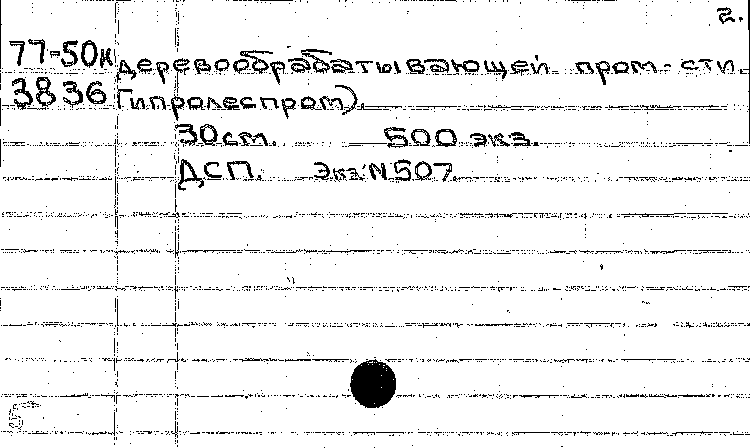 2.
77-50к деревообрабатывающей пром-сти.
3836 Гипролеспром).
30 см. 500 экз.
ДСП. Экз. N 507.